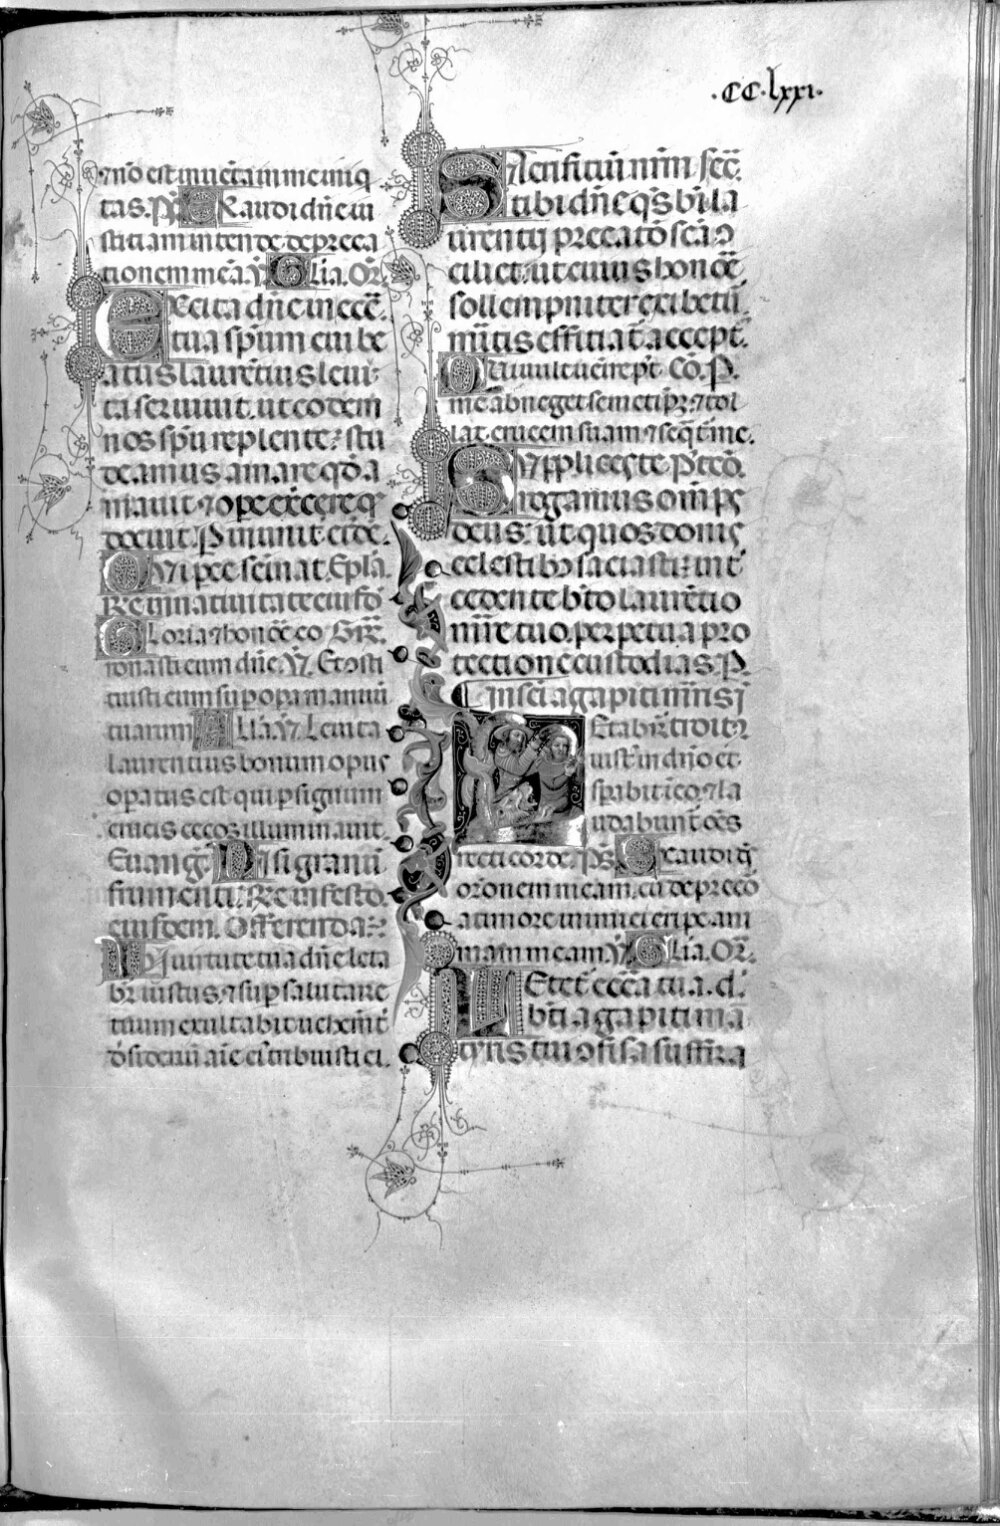 .CC.lxxi.
⁊ nō est inuēta in me iniq
tas. Ps̄. Exaudi dn̄e iu
stitiam intende depreca
tionem meā. ℣. Gl̄ia. Or̄.
Excita dn̄e in ecc̄
tua sp̄um cui be
atus laurētius leui
ta seruiuit. ut eodem
nos sp̄u repleti: stu
deamus amare qđ a
mauit. ⁊ ope exercere qđ
docuit. P
Epl̄a.
Re in natiuitate eiusdē
Gloria ⁊ honore co Gr̄.
ronasti eum dn̄e. ℣. Et ↄsti
tuisti eum sup opa manuū
tuarum All̄ia. ℣. Leuita
laurentius bonum opus
opatus est qui p signum
crucis cecos illuminauit.
Euanḡ. Nisi granū
frumenti. Re in festo
eiusdem. Offerenda
In uirtute tua dn̄e leta
bit̄ iustus. ⁊ sup salutare
tuum exultabit uehemēt̄
desideriū aīe eī tribuisti ei.
Sacrificiū nr̄m Sec̄.
tibi dn̄e q̄s bī la
urentij precatō sc̄a ↄ
ciliet. ut cuius honoē
sollempniter exibetū
mītis efficiat̄ accept̄.
Qui uult uenire p̄t Cō. P.
me abneget semetip̄m ⁊ tol
lat crucem suam ⁊ seqt̄ me.
Supplices te P̄tcō.
rogamus om̄ps
deus: ut quos donis
celestibꝫ saciasti: int̄
cedente bt̄o laurētio
mr̄e tuo. perpetua pro
tectione custodias. P
in sc̄i agapiti mr̄is
Letabit̄ Itroit̄
iust̄ in dn̄o et
sp̄abit in eo. ⁊ la
udabunt̄ oēs
recti corde. Ps̄. Exaudi ds̄
or̄onem meam. cū deprecō
a timore inimici eripe ani
mam meam. ℣. Gl̄ia. Or̄.
Letet̄ ecc̄a tua. d̄s
bt̄i agapiti mā
tyris tui ↄfisa suffra